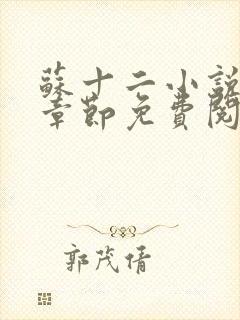 蘇十二小說
章節免費閱
郭茂倩